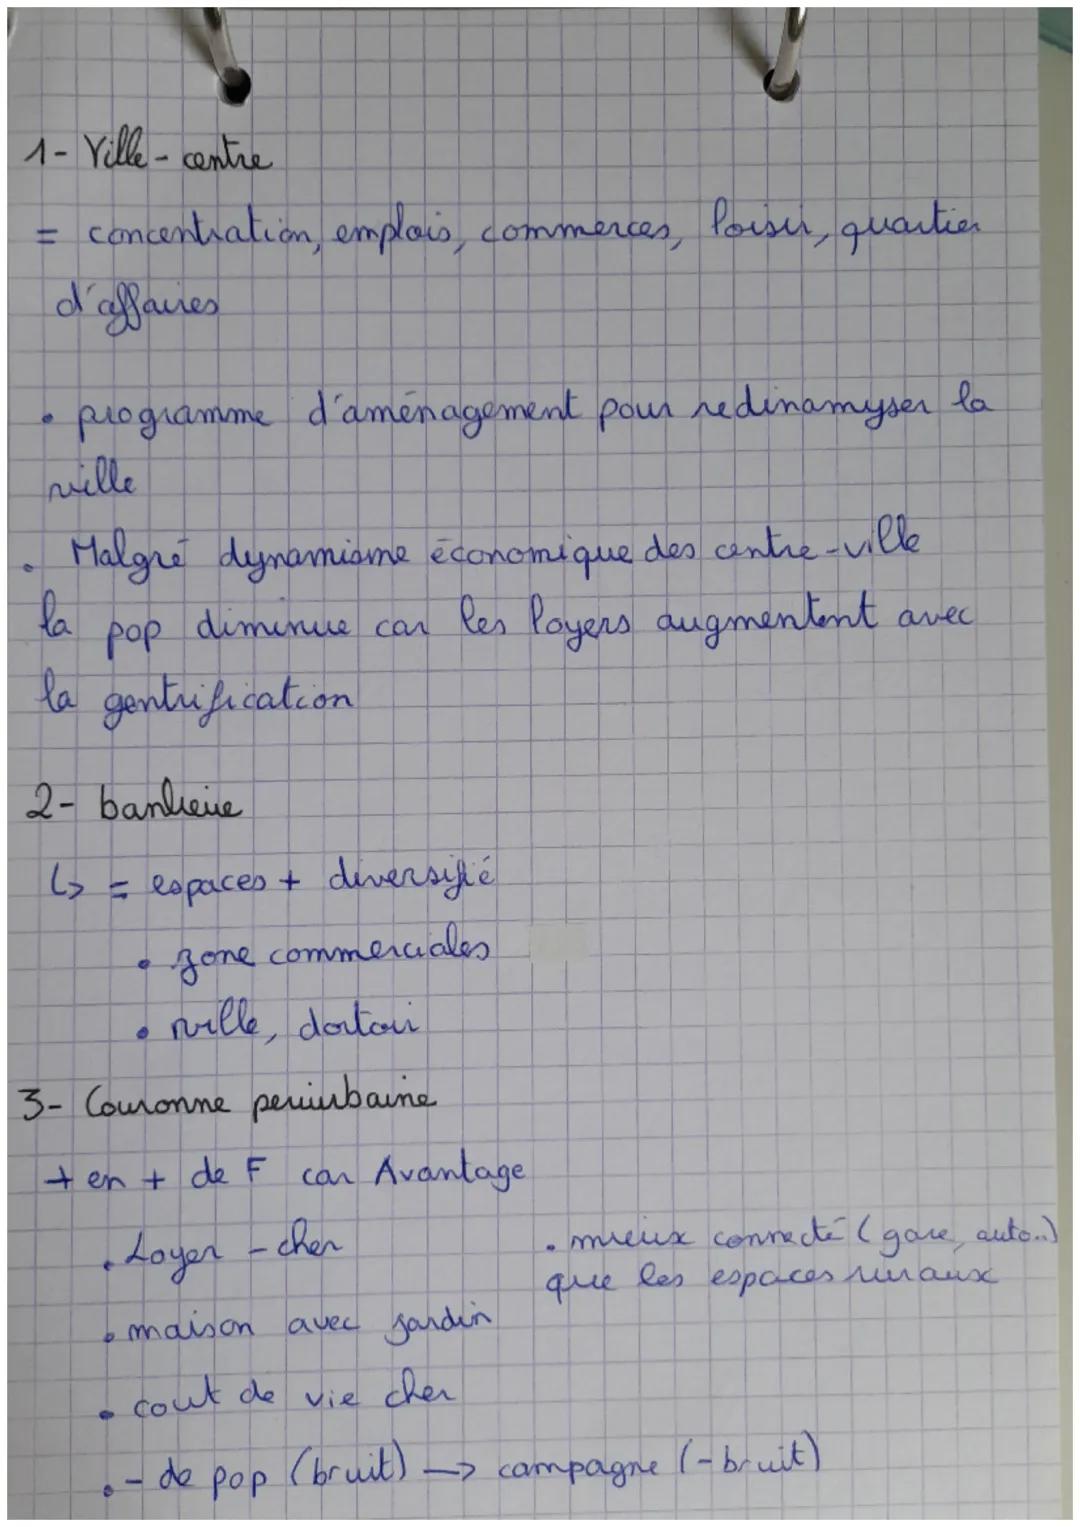 1- Ville-centre
= concentration, emplois, commerces, loisir, quartier
d'affaires
• programme d'aménagement pour redinamyser la
ville
• Malgré dynamisme économique des centre-ville
la pop diminue car les loyers augmentent avec
la gentrification
2- banlieue
↳ = espaces + diversifié
• zone commerciales
• ville, dortoir
3- Couronne periurbaine
+ en + de F car Avantage
• Loyer - cher
• maison avec jardin
• cout de vie cher
• - de pop (bruit) → campagne (- bruit)
• mieux connecté (gare, auto..)
que les espaces ruraux